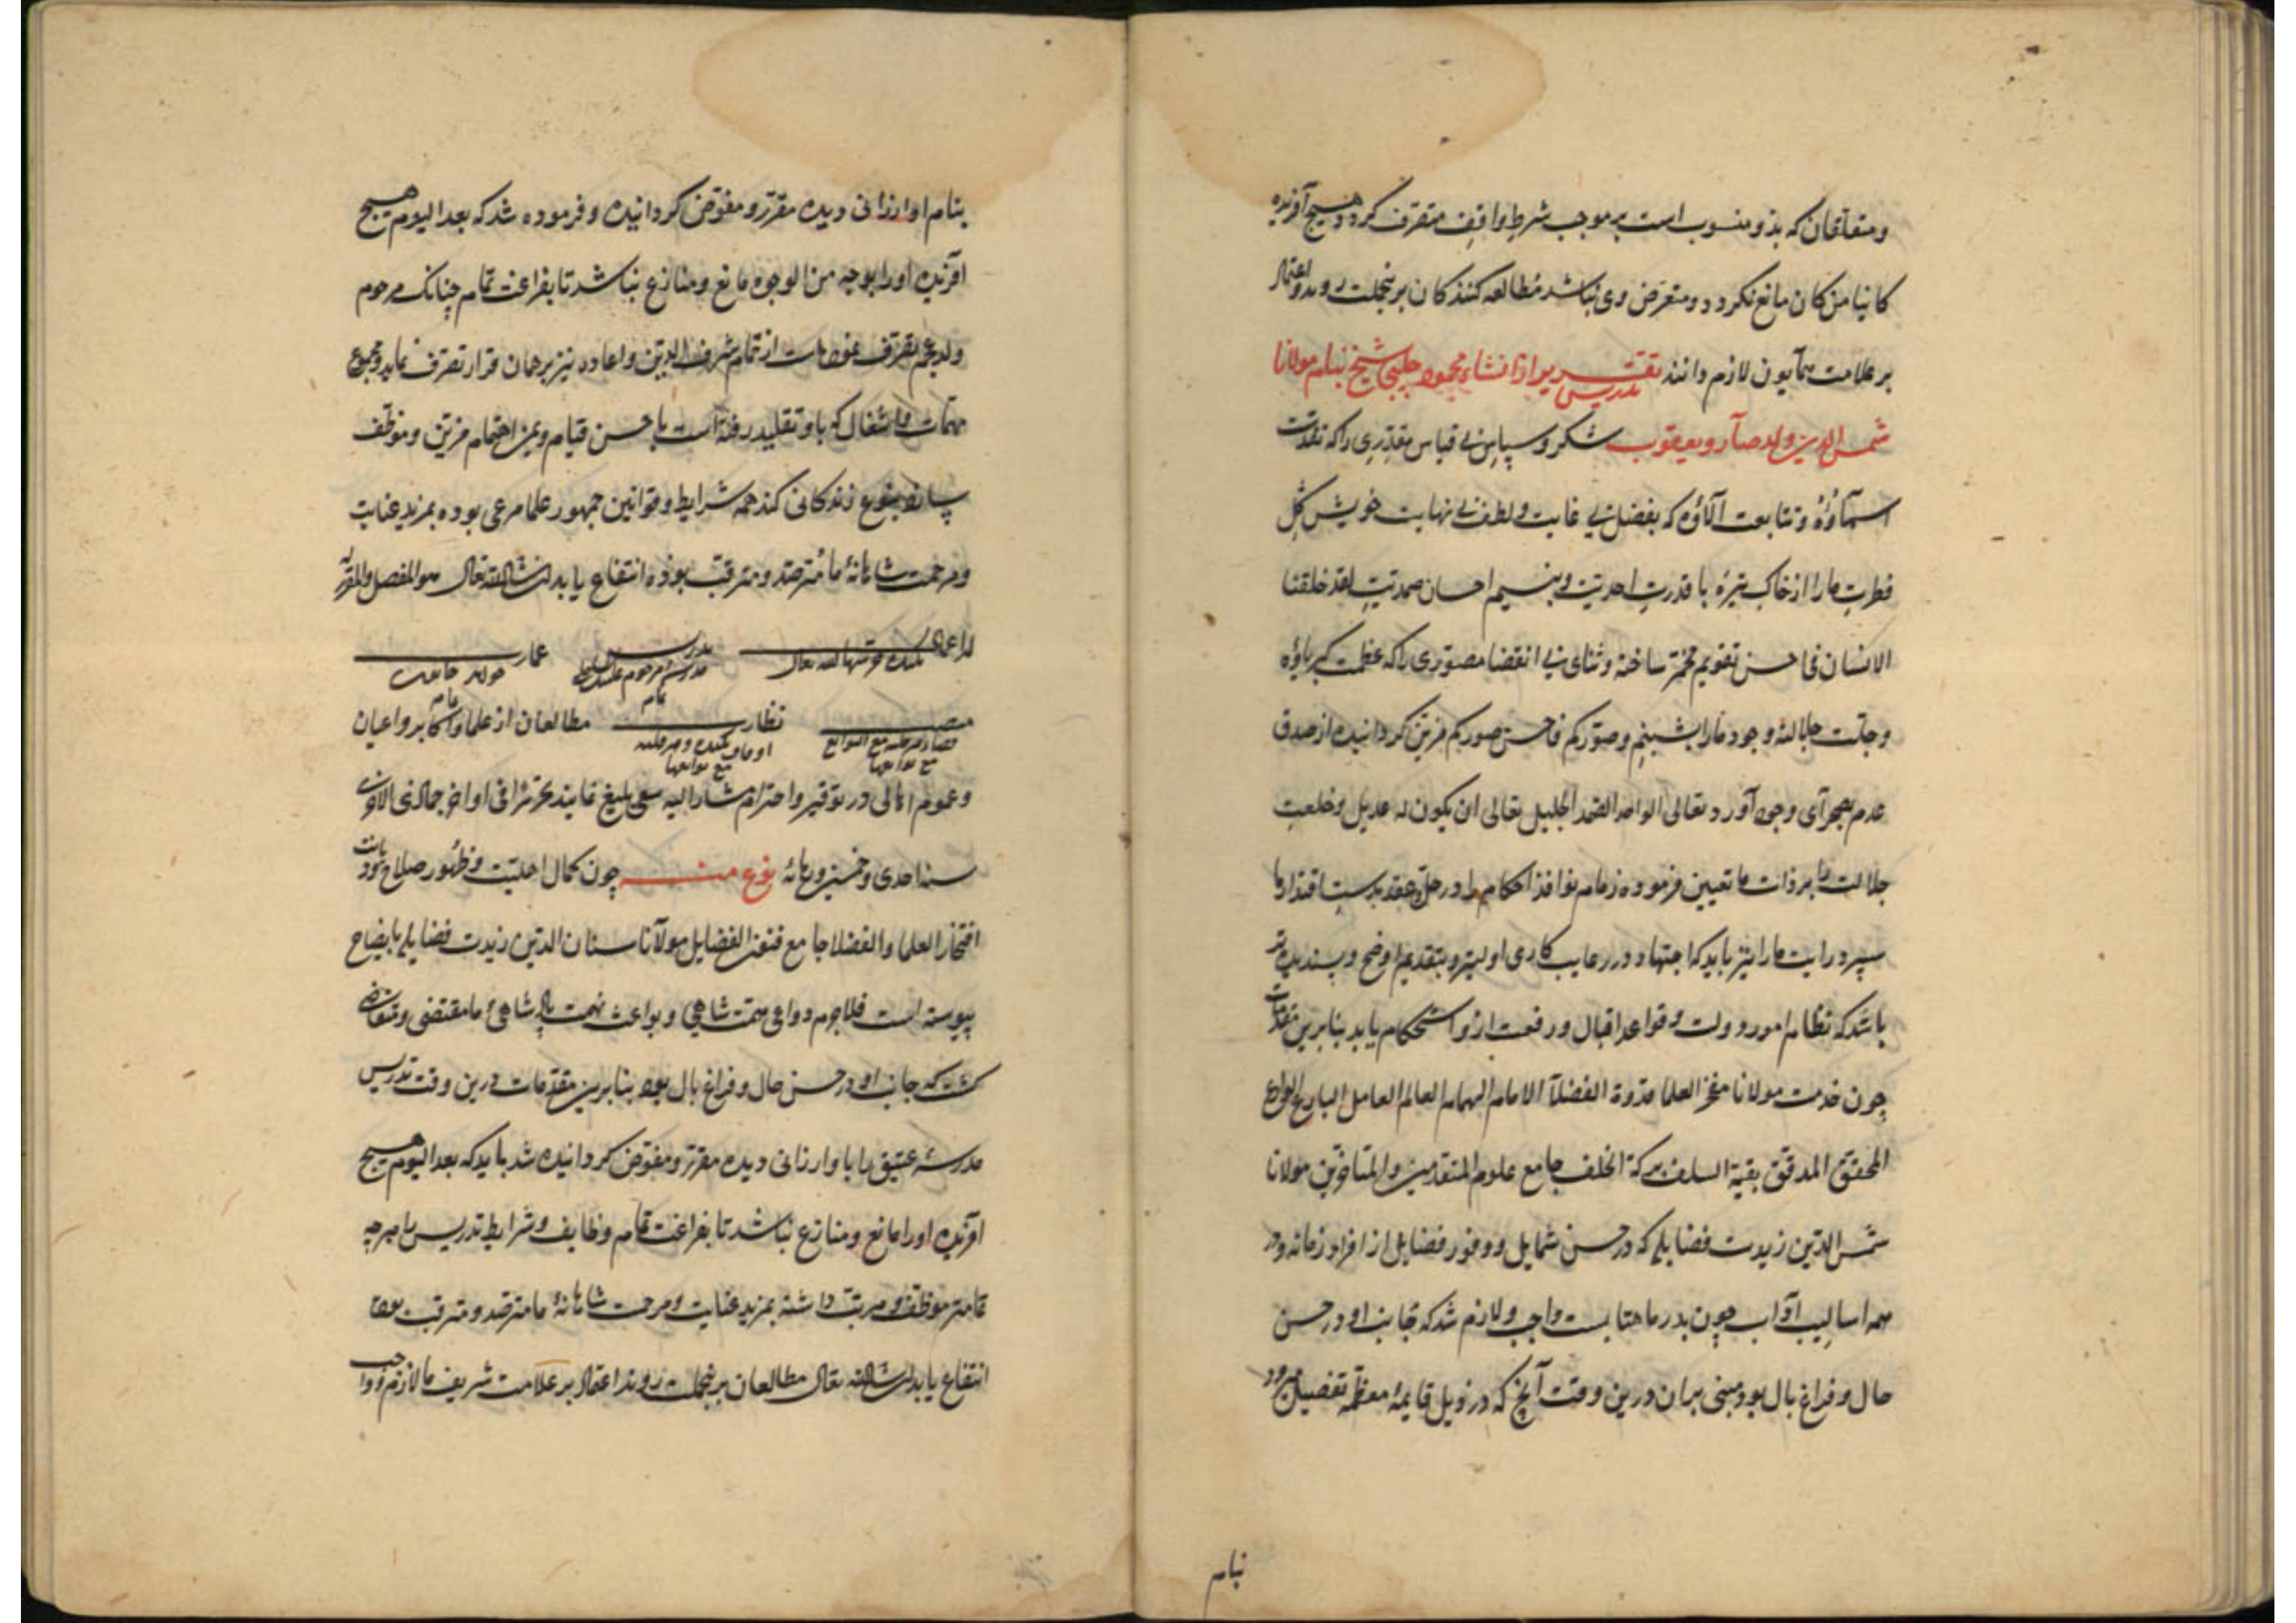 و متعلقان که بذو منسوب است بر موجب شرط واقف متصرف کردد و هیچ آفریده
کائنا من کان مانع نکردد و متعرض وی نباشد مطالعه کنندکان برینجملت روند و اعتماد
بر علامت همآیون لازم دانند تقریر تدریس از انشاء محمود چلبی شیخ بنام مولانا
شمس الدین ولد صارو یعقوب شکر و سپاس بی قیاس مقدّری را که تقدّست
اسمآؤهُ و تتابعت آلاؤه که بفضل بی غایت و لطف بی نهایت خویش کِل
فطرتِ مارا از خاک تیره با قدرتِ احدیت و بنسیم احسان صمدیتِ لقد خلقنا
الانسان فی احسن تقویم مخمّر ساخته و ثنای بی انقضا مصوّری را که عظمت کبریاؤه
و جلّت جلالهُ وجود مارا و صوّرکم فاحسن صورکم مزیّن کردانیده از صدق
عدم بصحرآی وجود آورد تعالی الواحد الصّمد الجلیل تعالی ان یکون له عدیل و خلعت
جلالت ما بر ذات ما تعیین فرموده زمام نوافذ احکام را در حل و عقد بدست اقتدار ما
سپرد رایت مارا نیز باید که اجتهاد در رعایت کاری اولیتر و بتقدیم اوضح و پسندیده تر
باشد که نظام امور دولت و قواعد اقبال و رفعت ازو استحکام یابد بنابرین مقدمات
چون خدمت مولانا مفخر العلما قدوة الفضلآ الامام الهمام العالم العامل البارع الوارع
المحقق المدقق بقیة السلف برکة الخلف جامع علوم المتقدمین و المتاخرین مولانا
شمس الدّین زیدت فضایله که در حسن شمایل و وفور فضایل از افراد زمانه و در
همه اسالیب آداب چون بدر ماهتابست واجب و لازم شد که جانب او در حسن
حال و فراغ بال بود مبنی بران درین وقت آنچ که در ذیل قایمهٔ معظّمه تفصیل میرود
بنام
بنام او ارزانی دیده مقرّر و مفوّض کردانیده و فرموده شد که بعد الیوم هیچ
آفریده اورا بوجه من الوجوه مانع و منازع نباشد تا بفراغت تمام چنانک مرحوم
تصرف شرف الدین و اعاده نیز بر همان قرار تصرف نماید و مجموع
مهمّات و اشغال که باو تقلید رفته است باحسن قیام و یمن اهتمام مزیّن و موظّف
بنوع زندکانی کند همه شرایط و قوانین جمهور علما مرعی بوده بمزید عنایت
و مرحمت شاهانهٔ ما مترصّد و مترقّب بوذه انتفاع یابد ان شاء الله تعالی هو المفصل و المقرر
حرّسها الله تعالی
مدرس
عمار
نظار
مطالعان از علما و اکابر و اعیان
و عموم اهالی در توقیر و احترام مشار الیه سعی بلیغ نمایند تحریرا فی اواخر جمادی الاخری
سنه احدی و خمسین و ثمانمائهٔ نوع منه چون کمال اهلیّت و ظهور صلاح دیانت
افتخار العلما و الفضلا جامع فنون الفضایل مولآنا سنان الدّین زیدت فضایله بایضاح
پیوسته است فلاجرم دواعی همّت شاهی و بواعث نهمت پادشاهیٔ ما مقتضی و متقاضی
کشت که جانب او در حسن حال و فراغ بال بود بنابرین مقدّمات درین وقت تدریس
مدرسهٔ عتیق را باو ارزانی دیده مقرّر و مفوّض کردانیده شد باید که بعد الیوم هیچ
آفریده اورا مانع و منازع نباشد تا بفراغت تمام وظایف و شرایط تدریس را هرچه
تمامتر موظّف و مرتّب داشته بمزید عنایت و مرحمت شاهانهٔ ما مترصّد و مترقّب بوده
انتفاع یابد ان شاء الله تعالی مطالعان برینجملت روند اعتماد بر علامت شریف ما لازم و واجب